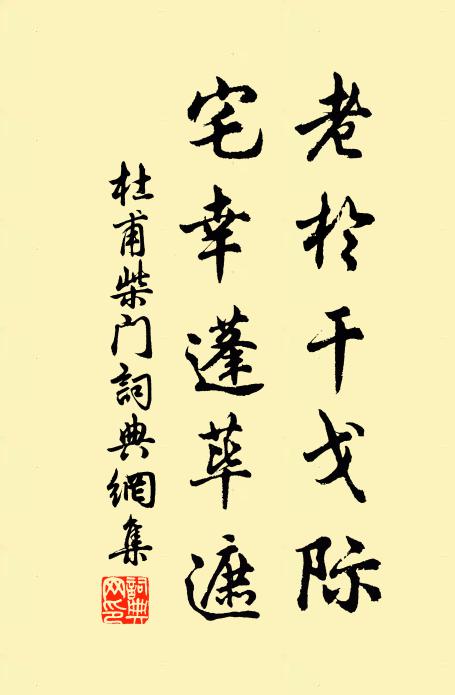 老於干戈际
宅幸蓬荜遮
杜甫柴门詞典網集
詞典網印